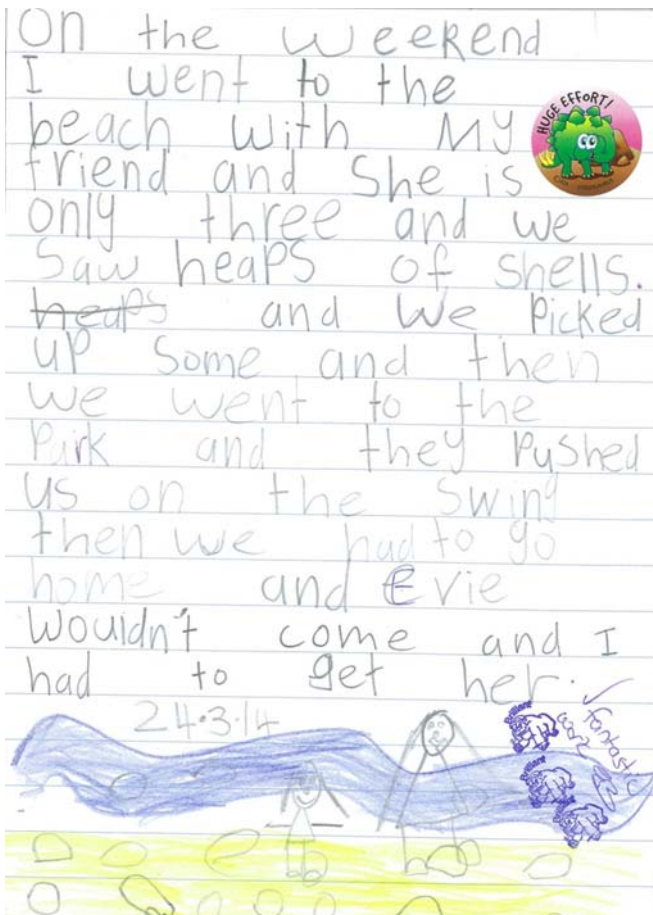 On the weekend
I went to the
beach with My
friend and She is
only three and we
Saw heaps of shells.
heaps and we Picked
up some and then
we went to the
Park and they Pushed
us on the swing
then we had to go
home and Evie
wouldn't come and I
had to get her.
HUGE EFFORT!
24.3.14
fantastic
work